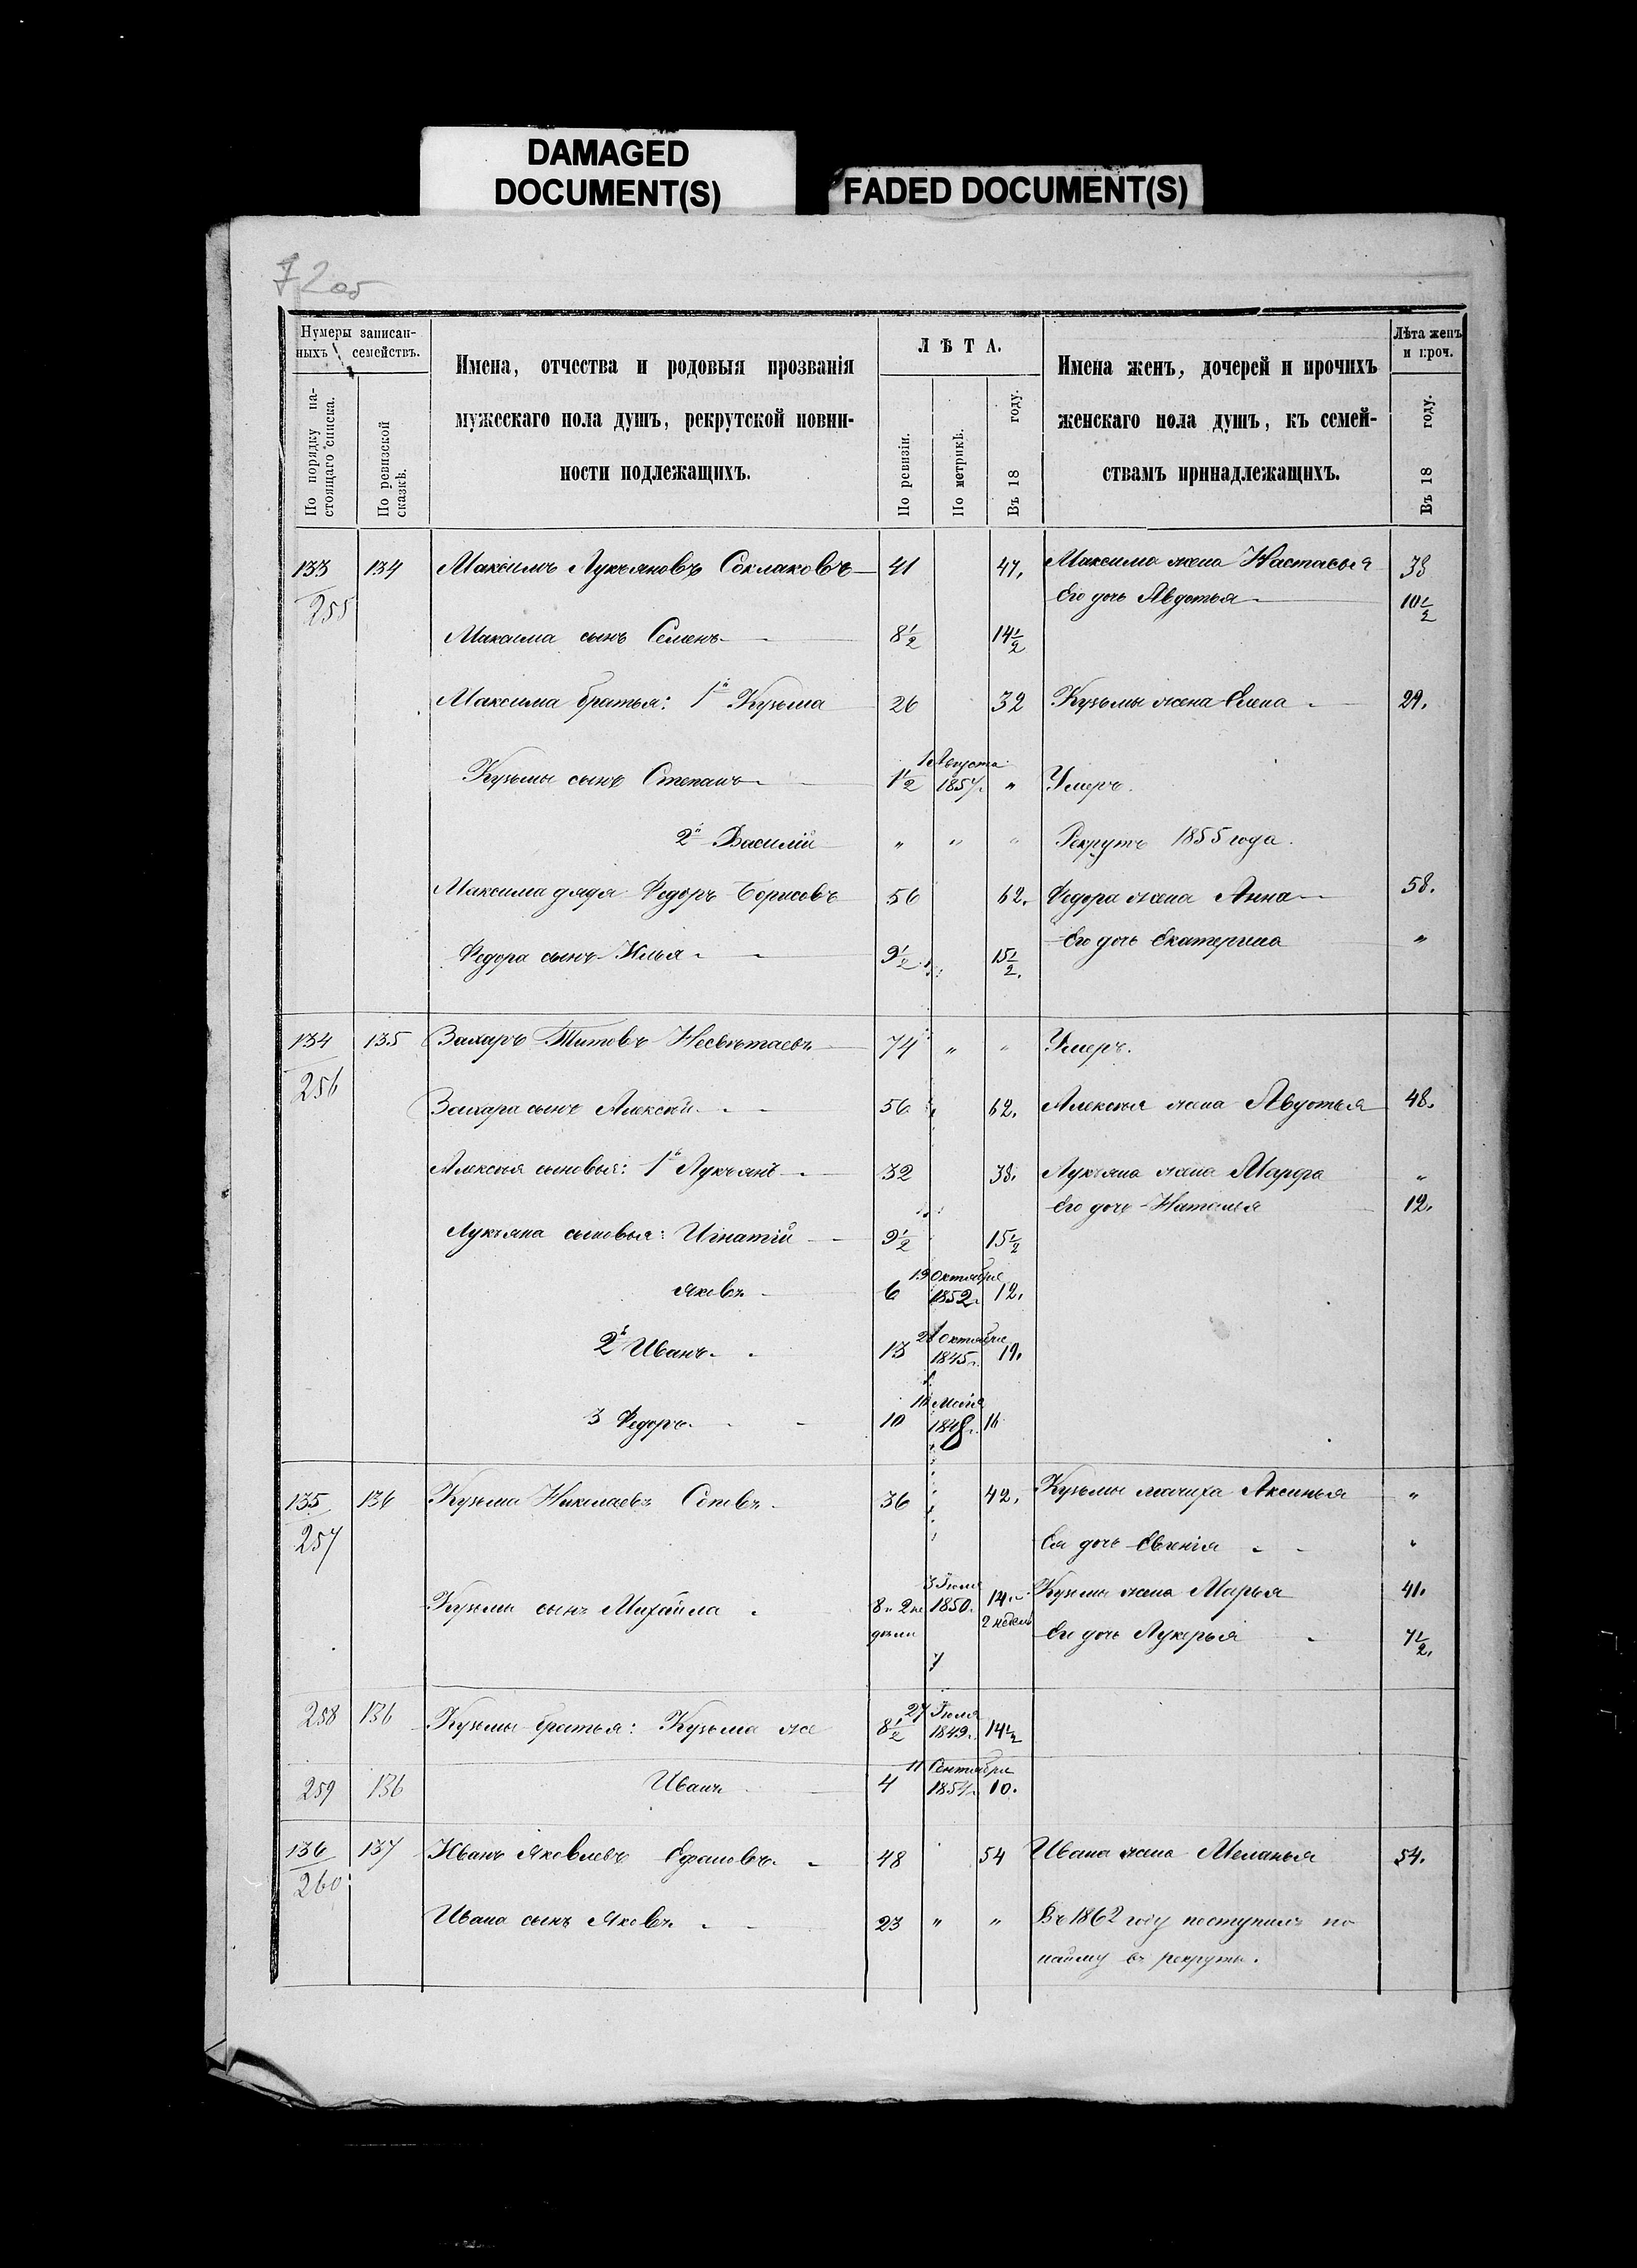 DAMAGED
DOCUMENT(S)
FADED DOCUMENT(S)
72об
Нумеры записан-
ныхъ семействъ.
По порядку на-
стоящаго списка.
По ревизской
сказкѣ.
Имена, отчества и родовыя прозванія
мужескаго пола душъ, рекрутской повин-
ности подлежащихъ.
ЛѢТА.
По ревизіи.
По метрикѣ.
Въ 18 году.
Имена женъ, дочерей и прочихъ
женскаго пола душъ, къ семей-
ствамъ принадлежащихъ.
Лѣта женъ
и проч.
Въ 18 году.
133 134 Максимъ Лукьяновъ Соклаковъ 41 47. Максима жена Настасья 38
255 Его дочь Авдотья 10 1/2
Максима сынъ Семенъ 8 1/2 14 1/2
Максима братья: 1й Кузьма 26 32 Кузьмы жена Елена 29.
Кузьмы сынъ Степанъ 1 1/2 1 Августа 1857. " Умеръ.
2й Василій " " " Рекрутъ 1855 года.
Максима дядя Федоръ Борисовъ 56 62. Федора жена Анна 58.
Его дочь Екатерина "
Федора сынъ Илья 9 1/2 15 1/2.
134 135 Захаръ Титовъ Несвѣтаевъ 74 " " Умеръ.
256
Захара сынъ Алексѣй 56 62. Алексѣя жена Авдотья 48.
Алексѣя сыновья: 1й Лукьянъ 32 38. Лукьяна жена Марфа "
Его дочь Наталья 12.
Лукьяна сыновья: Игнатій 9 1/2 15 1/2
Яковъ 6 19 Октября 1852. 12.
2й Иванъ 13 28 Октября 1845. 19.
3 Федоръ 10 Мая 1848. 16
135 136 Кузьма Николаевъ 36 42. Кузьмы мачиха Аксинья "
257
Ея дочь Евгенія "
Кузьмы сынъ Михайла 8 и 2 не 3 Іюля 1850. 14 и Кузьмы жена Марья 41.
дѣли 2 недѣль Ея дочь Лукерья 7 1/2.
258 136 Кузьмы братья: Кузьма же 8 1/2 27 Іюля 1849. 14 1/2
259 136 Иванъ 4 11 Сентября 1854. 10.
136 137 Иванъ Яковлевъ 48 54 Ивана жена Меланья 54.
260
Ивана сынъ Яковъ 23 " " Въ 1862 году поступилъ по
найму въ рекруты.